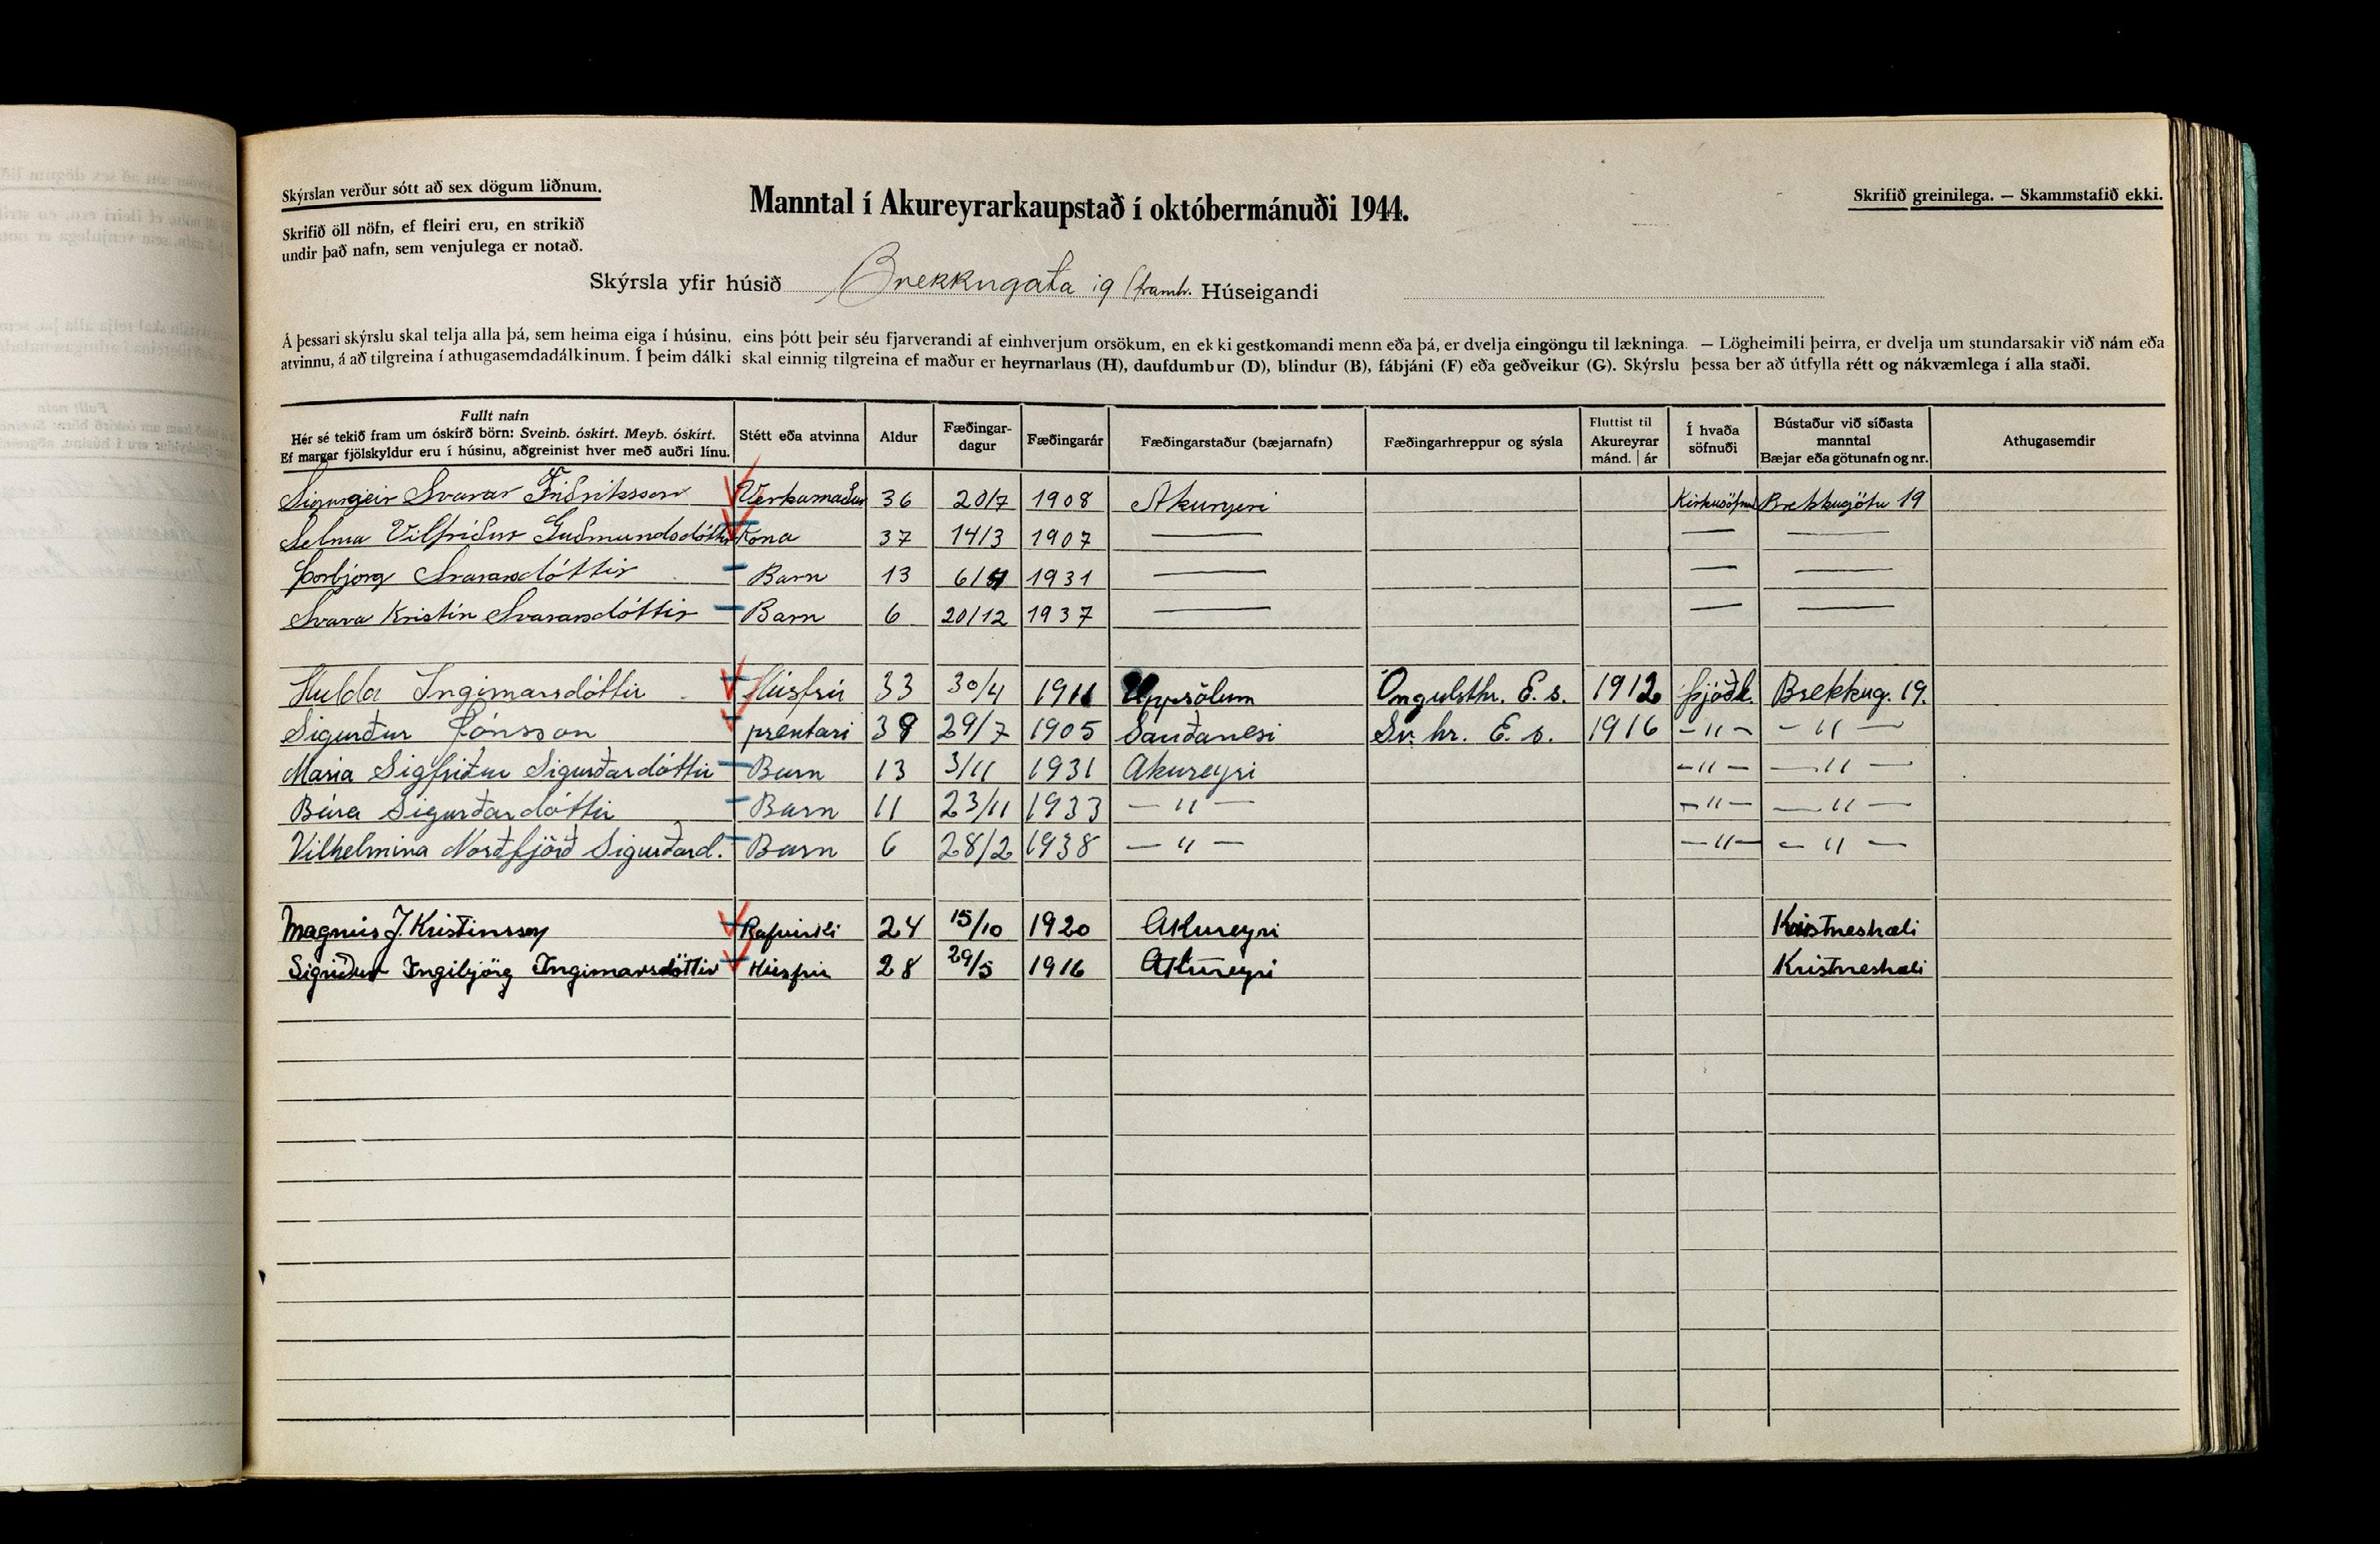 Skýrslan verður sótt að sex dögum liðnum.
Skrifið öll nöfn, ef fleiri eru, en strikið
undir það nafn, sem venjulega er notað.
Manntal í Akureyrarkaupstað í októbermánuði 1944.
Skrifið greinilega. — Skammstafið ekki.
Skýrsla yfir húsið Brekkugata 19 (framh. Húseigandi
Á þessari skýrslu skal telja alla þá, sem heima eiga í húsinu, eins þótt þeir séu fjarverandi af einhverjum orsökum, en ekki gestkomandi menn eða þá, er dvelja eingöngu til lækninga. — Lögheimili þeirra, er dvelja um stundarsakir við nám eða
atvinnu, á að tilgreina í athugasemdadálkinum. Í þeim dálki skal einnig tilgreina ef maður er heyrnarlaus (H), daufdumbur (D), blindur (B), fábjáni (F) eða geðveikur (G). Skýrslu þessa ber að útfylla rétt og nákvæmlega í alla staði.
Fullt nafn
Hér sé tekið fram um óskírð börn: Sveinb. óskírt. Meyb. óskírt.
Ef margar fjölskyldur eru í húsinu, aðgreinist hver með auðri línu.
Stétt eða atvinna
Aldur
Fæðingar-
dagur
Fæðingarár
Fæðingarstaður (bæjarnafn)
Fæðingarhreppur og sýsla
Fluttist til
Akureyrar
mánd. | ár
Í hvaða
söfnuði
Bústaður við síðasta
manntal
Bæjar eða götunafn og nr.
Athugasemdir
Sigurgeir Svavar Friðriksson Verkamaður 36 20/7 1908 Akureyri Kirkusöfnuð Brekkugötu 19
Selma Vilfríður Guðmundsdóttir Kona 37 14/3 1907 — — —
Þorbjörg Svavarsdóttir Barn 13 6/ 1931 — — —
Svava Kristín Svavarsdóttir Barn 6 20/12 1937 — — —
Hulda Ingimarsdóttir Húsfrú 33 30/4 1911 Uppsölum Öngulsthr. E. s. 1912 Þjóðk. Brekkug. 19.
Sigurður Jónsson prentari 39 29/7 1905 Sauðanesi Sv. hr. E. s. 1916 — " — — " —
María Sigfríður Sigurðardóttir Barn 13 3/11 1931 Akureyri — " — — " —
Bára Sigurðardóttir Barn 11 23/11 1933 — " — — " — — " —
Vilhelmína Norðfjörð Sigurðard. Barn 6 28/2 1938 — " — — " — — " —
Magnús J. Kristinsson Rafvirki 24 15/10 1920 Akureyri Kristneshæli
Sigríður Ingibjörg Ingimarsdóttir Húsfrú 28 29/5 1916 Akureyri Kristneshæli